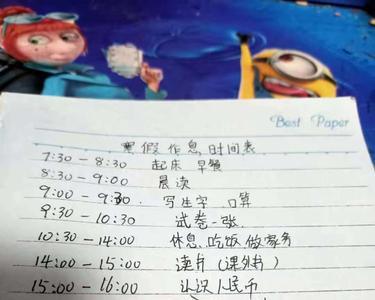 Best Paper
寒假作息时间表
7:30 - 8:30 起床 早餐
8:30 - 9:00 晨读
9:00 - 9:30. 写生字 口算
9:30 - 10:30 试卷一张
10:30 - 14:00 休息、吃饭、做家务
14:00 - 15:00 读书（课外书）
15:00 - 16:00 认识人民币